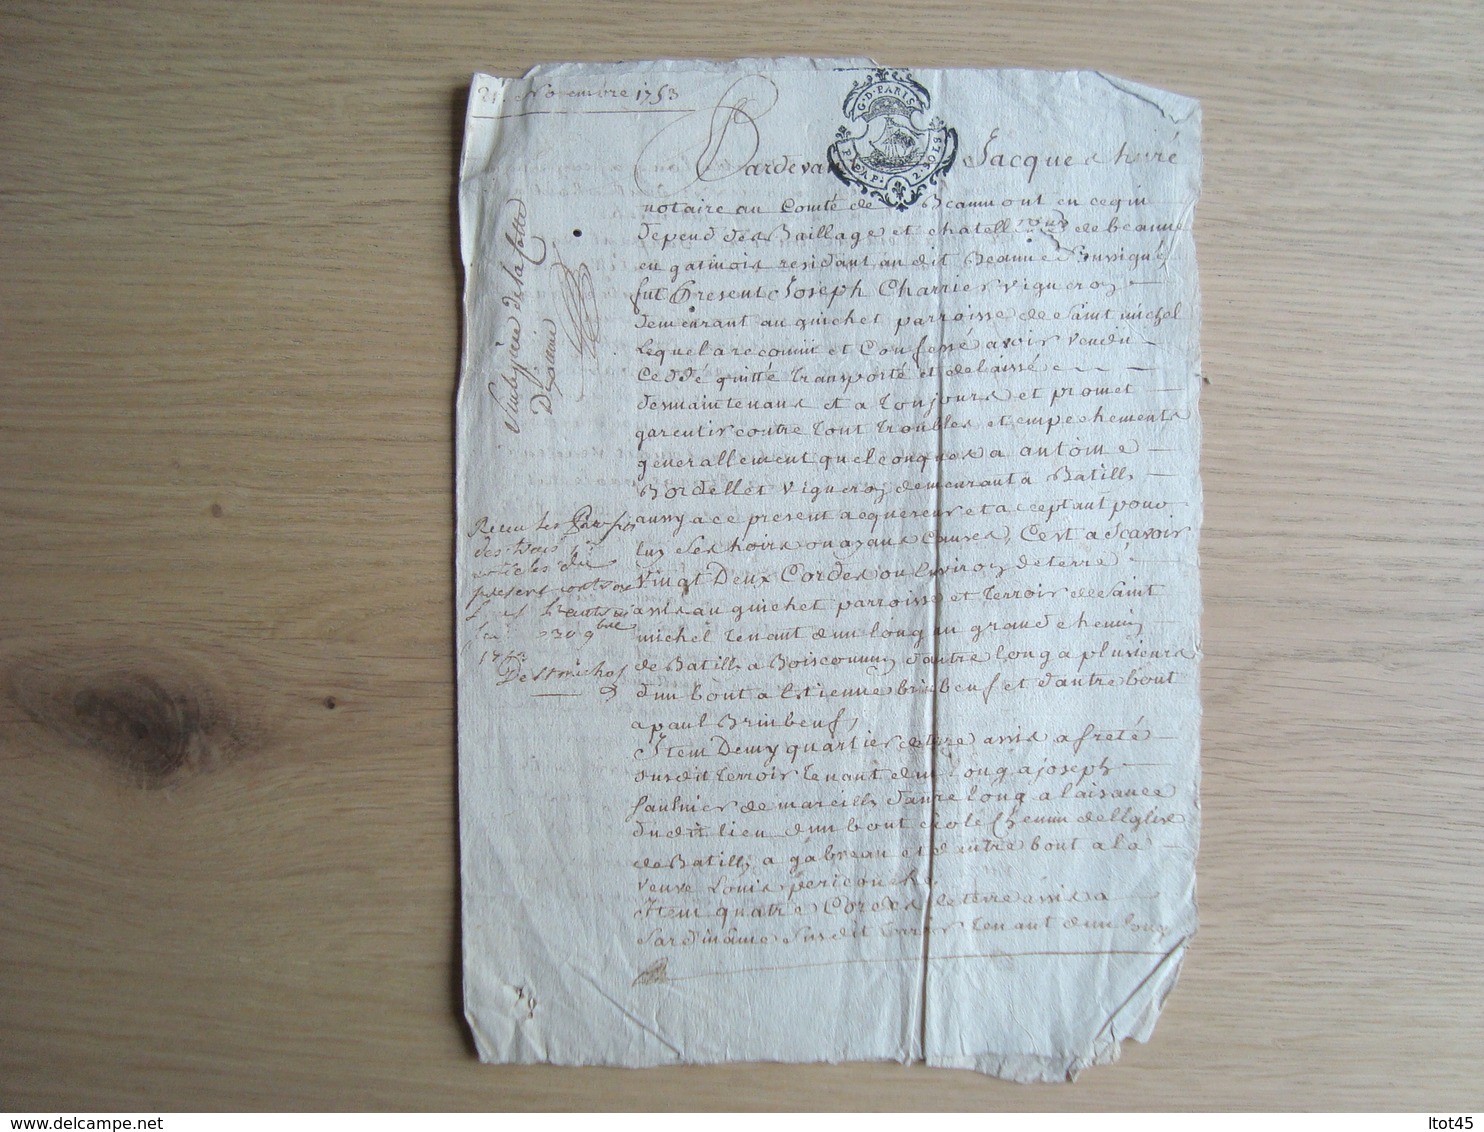 21 Novembre 1753
G·D·PARIS
PAPAP: 2·SOLS
Pardevant Jacque huré
notaire au Comté de Beaumont en ce qui
depend des Baillage et chatell de beaune
en gatinois residant audit Beaune Soussigné
fut present Joseph Charrier vigneron
demeurant au guichet parroisse de Saint michel
lequel a reconnu et Confessé avoir vendu
Ceddé quitté transporté et delaissé
desmaintenans et a toujours et promet
garentir contre tout troubles et empechements
generallement quelconques a antoine
Bordellet vigneron demeurant a Batilly
aussy a ce present acquereur et acceptant pour
luy Ses hoirs ou ayans Causes, C'est a Scavoir
Vingt Deux Cordes ou Environ de terre
assis au guichet parroisse et terroir de Saint
michel tenant d'un long au grand chemin
de Batilly a Boiscommun d'autre long a plusieurs
d'un bout a Etienne brinbeuf et d'autre bout
a paul Brinbeuf,
Item Demy quartier de terre assis a freté
susdit terroir tenant d'un long a joseph
Saulnier de mareilly d'autre long a laisance
dudit lieu d'un bout Chemin de l'Eglise
de Batilly a gabveau et d'autre bout a la
veuve Louis pericouche,
Item quatre Cordes de terre assis a
Sardiname Susdit terroir tenant d'un long
de la Cotte
Receu les
des trois
articles du
present contrat
1753
De St michel
Itot45
www.delcampe.net